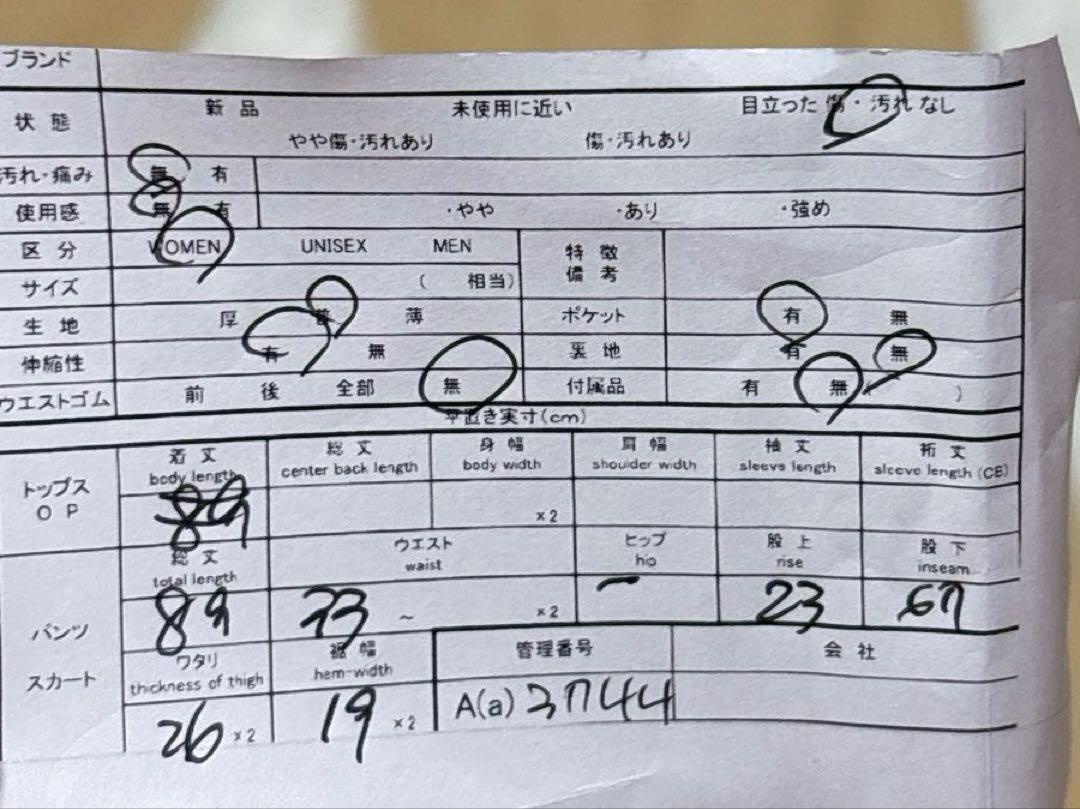 ブランド
状態 新品 未使用に近い 目立った傷・汚れなし
やや傷・汚れあり 傷・汚れあり
汚れ・痛み 無 有
使用感 無 有 ・やや ・あり ・強め
区分 WOMEN UNISEX MEN 特徴
備考
サイズ ( 相当)
生地 厚 普 薄 ポケット 有 無
伸縮性 有 無 裏地 有 無
ウエストゴム 前 後 全部 無 付属品 有 無 ( )
平置き実寸(cm)
トップス
OP
着丈 総丈 身幅 肩幅 袖丈 裄丈
body length center back length body width shoulder width sleeve length sleeve length (CB)
89 ×2
パンツ
スカート
総丈 ウエスト ヒップ 股上 股下
total length waist hip rise inseam
89 ～ ×2 23 67
ワタリ 裾幅 管理番号 会社
thickness of thigh hem-width
26 ×2 19 ×2 A(a) 3744